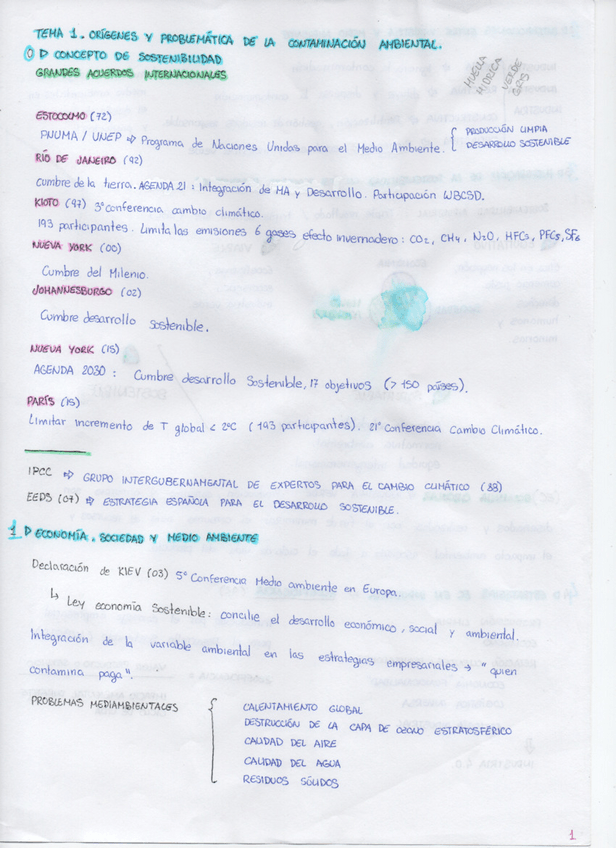 TEMA 1. ORÍGENES Y PROBLEMÁTICA DE LA CONTAMINACIÓN AMBIENTAL.
0 D CONCEPTO DE SOSTENIBILIDAD
GRANDES ACUERDOS INTERNACIONALES
HUELLA HÍDRICA
VERDE
GRIS
ESTOCOLMO (72)
PNUMA / UNEP ⇨ Programa de Naciones Unidas para el Medio Ambiente. { PRODUCCIÓN LIMPIA
DESARROLLO SOSTENIBLE
RÍO DE JANEIRO (92)
Cumbre de la tierra. AGENDA 21 : Integración de MA y Desarrollo. Participación WBCSD.
KIOTO (97) 3ª conferencia cambio climático.
193 participantes. Limita las emisiones 6 gases efecto invernadero : CO2, CH4, N2O, HFCs, PFCs, SF6
NUEVA YORK (00)
Cumbre del Milenio.
JOHANNESBURGO (02)
Cumbre desarrollo sostenible.
NUEVA YORK (15)
AGENDA 2030 : Cumbre desarrollo Sostenible, 17 objetivos (> 150 países).
PARÍS (15)
Limitar incremento de T global < 2ºC (193 participantes). 21ª Conferencia Cambio Climático.
IPCC ⇨ GRUPO INTERGUBERNAMENTAL DE EXPERTOS PARA EL CAMBIO CLIMÁTICO (88)
EEDS (07) ⇨ ESTRATEGIA ESPAÑOLA PARA EL DESARROLLO SOSTENIBLE.
1 D ECONOMÍA, SOCIEDAD Y MEDIO AMBIENTE
Declaración de KIEV (03) 5ª Conferencia Medio ambiente en Europa.
↳ Ley economía Sostenible : concilie el desarrollo económico, social y ambiental.
Integración de la variable ambiental en las estrategias empresariales → " quien
contamina paga ".
PROBLEMAS MEDIAMBIENTALES { CALENTAMIENTO GLOBAL
DESTRUCCIÓN DE LA CAPA DE OZONO ESTRATOSFÉRICO
CALIDAD DEL AIRE
CALIDAD DEL AGUA
RESIDUOS SÓLIDOS
1